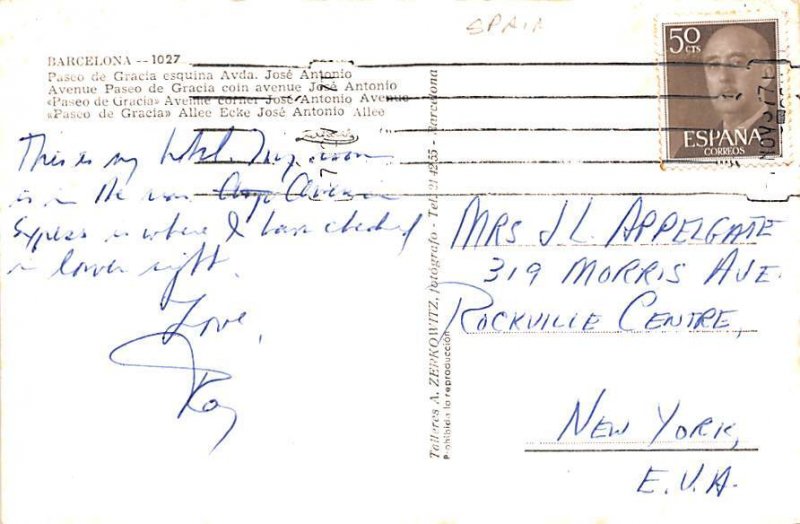 SPAIN
BARCELONA -- 1027
Paseo de Gracia esquina Avda. José Antonio
Avenue Paseo de Gracia coin avenue José Antonio
«Paseo de Gracia» Avenue corner José Antonio Avenue
«Paseo de Gracia» Allee Ecke José Antonio Allee
50 CTS
ESPAÑA
CORREOS
This is my hotel. My room
is in the rear
Express is where I have checked
in lower right.
Love,
Ray
Talleres A. ZERKOWITZ, fotógrafo - Tel. 21 42 55 - Barcelona
Prohibida la reproducción
MRS J L APPELGATE
319 MORRIS AVE.
ROCKVILLE CENTRE,
NEW YORK,
E.U.A.